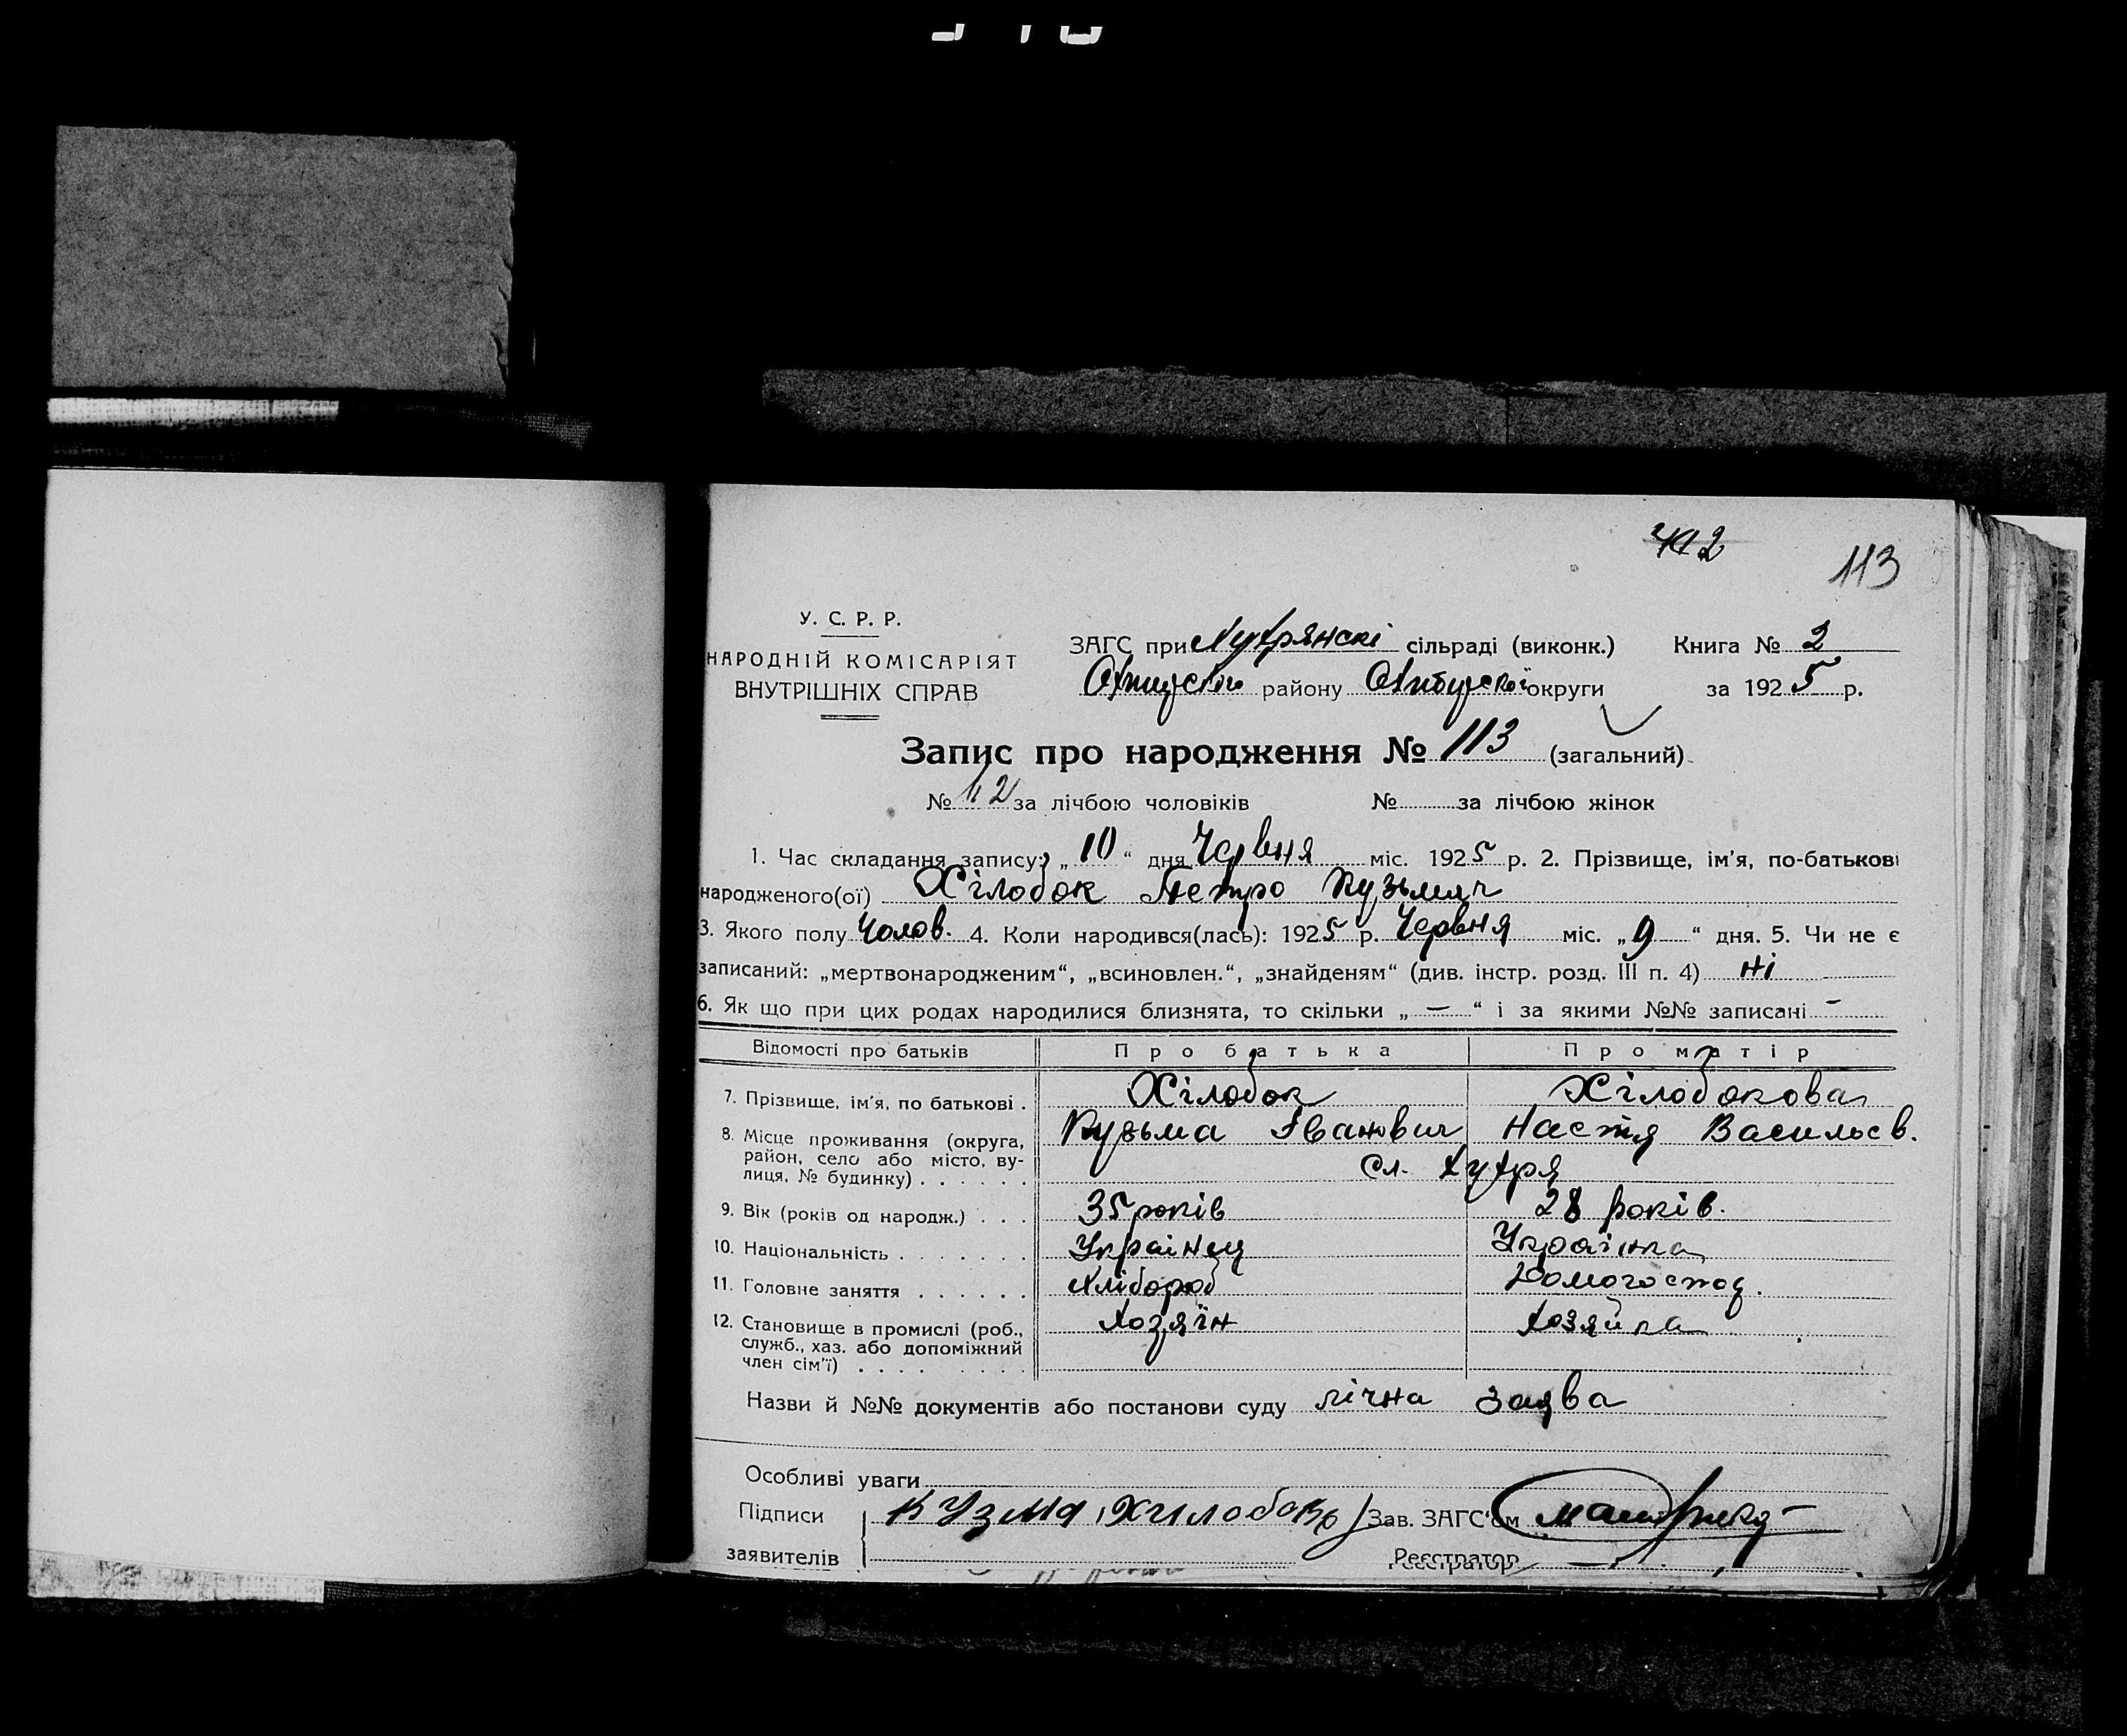 113
У. С. Р. Р.
НАРОДНІЙ КОМІСАРІЯТ
ВНУТРІШНІХ СПРАВ
ЗАГС при сільраді (виконк.) Книга № 2
району округи за 1925 р.
Запис про народження № 113 (загальний)
№ за лічбою чоловіків № за лічбою жінок
1. Час складання запису: „10“ дня Червня міс. 1925 р. 2. Прізвище, ім'я, по-батькові
народженого(ої) Хілобок Петро Кузьмич
3. Якого полу Чолов. 4. Коли народився(лась): 1925 р. Червня міс. „9“ дня. 5. Чи не є
записаний: „мертвонародженим“, „всиновлен.“, „знайденям“ (див. інстр. розд. III п. 4) ні
6. Як що при цих родах народилися близнята, то скільки „—“ і за якими №№ записані -
Відомості про батьків Про батька Про матір
7. Прізвище, ім'я, по батькові . Хілобок Хілобокова
Кузьма Іванович Настя Васильєв.
8. Місце проживання (округа, район, село або місто, вулиця, № будинку) . . . . . . сл. Хухря
9. Вік (років од народж.) . . . 35 років 28 років.
10. Національність . . . . . . . Украінец Украінка
11. Головне заняття . . . . . . Хлібороб Домогоспод.
12. Становище в промислі (роб., служб., хаз. або допоміжний член сім'ї) . . . . . . . . Хозяїн Хозяйка
Назви й №№ документів або постанови суду лічна заява
Особливі уваги
Підписи Кузма Хилобок Зав. ЗАГС'ом
заявителів Реєстратор